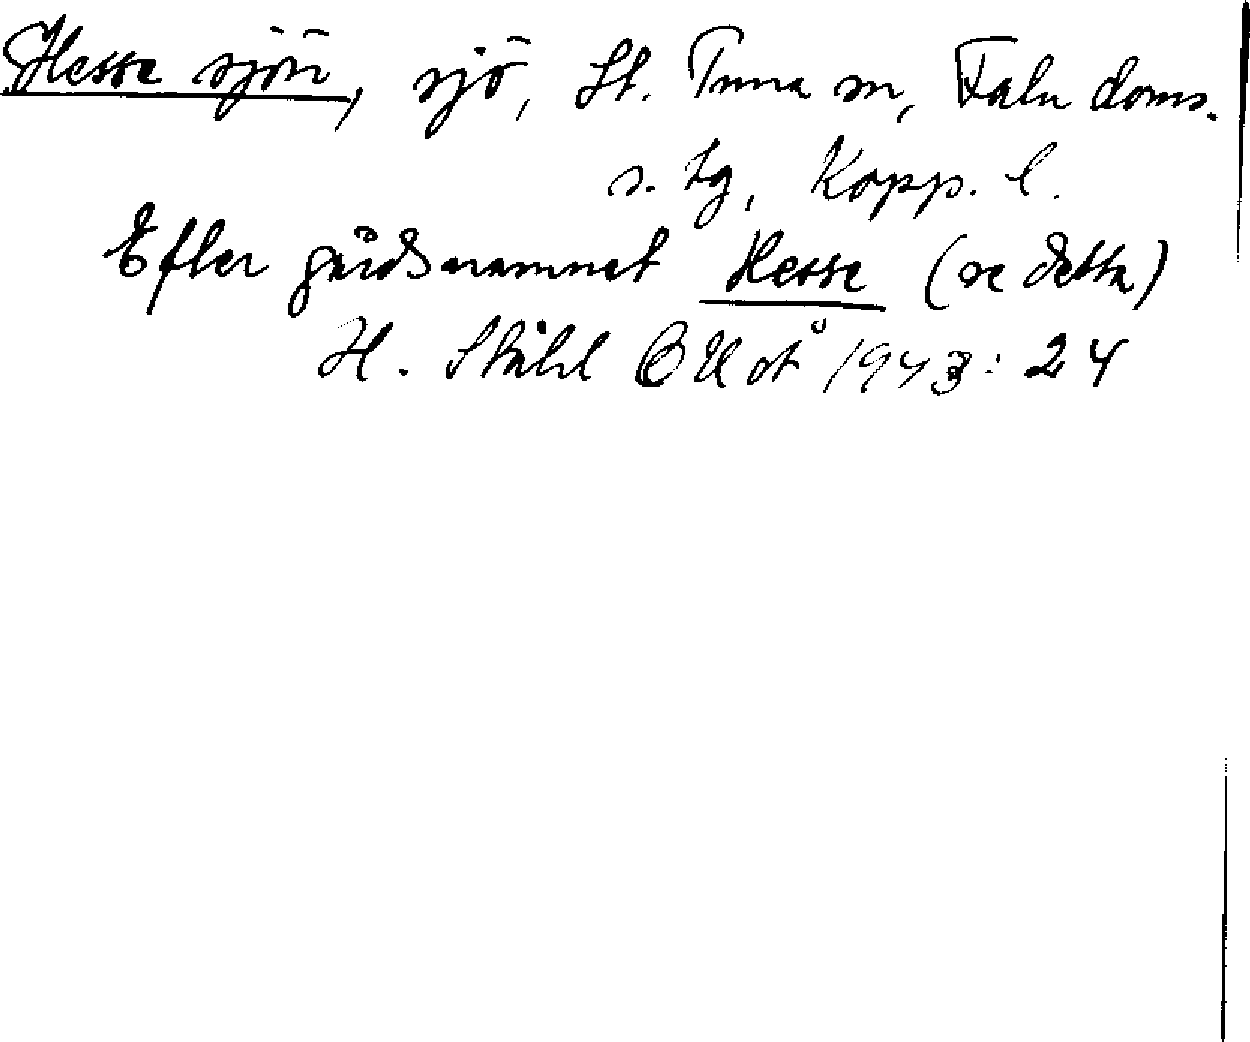 Hessesjön, sjö, St. Tuna sn, Falu doms.
s. tg, Kopp. l.
Efter gårdsnamnet Hesse (se detta)
H. Ståhl 1943: 24